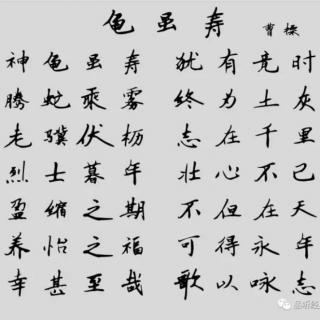 龟虽寿
曹操
神龟虽寿 犹有竟时
腾蛇乘雾 终为土灰
老骥伏枥 志在千里
烈士暮年 壮心不已
盈缩之期 不但在天
养怡之福 可得永年
幸甚至哉 歌以咏志
品听经